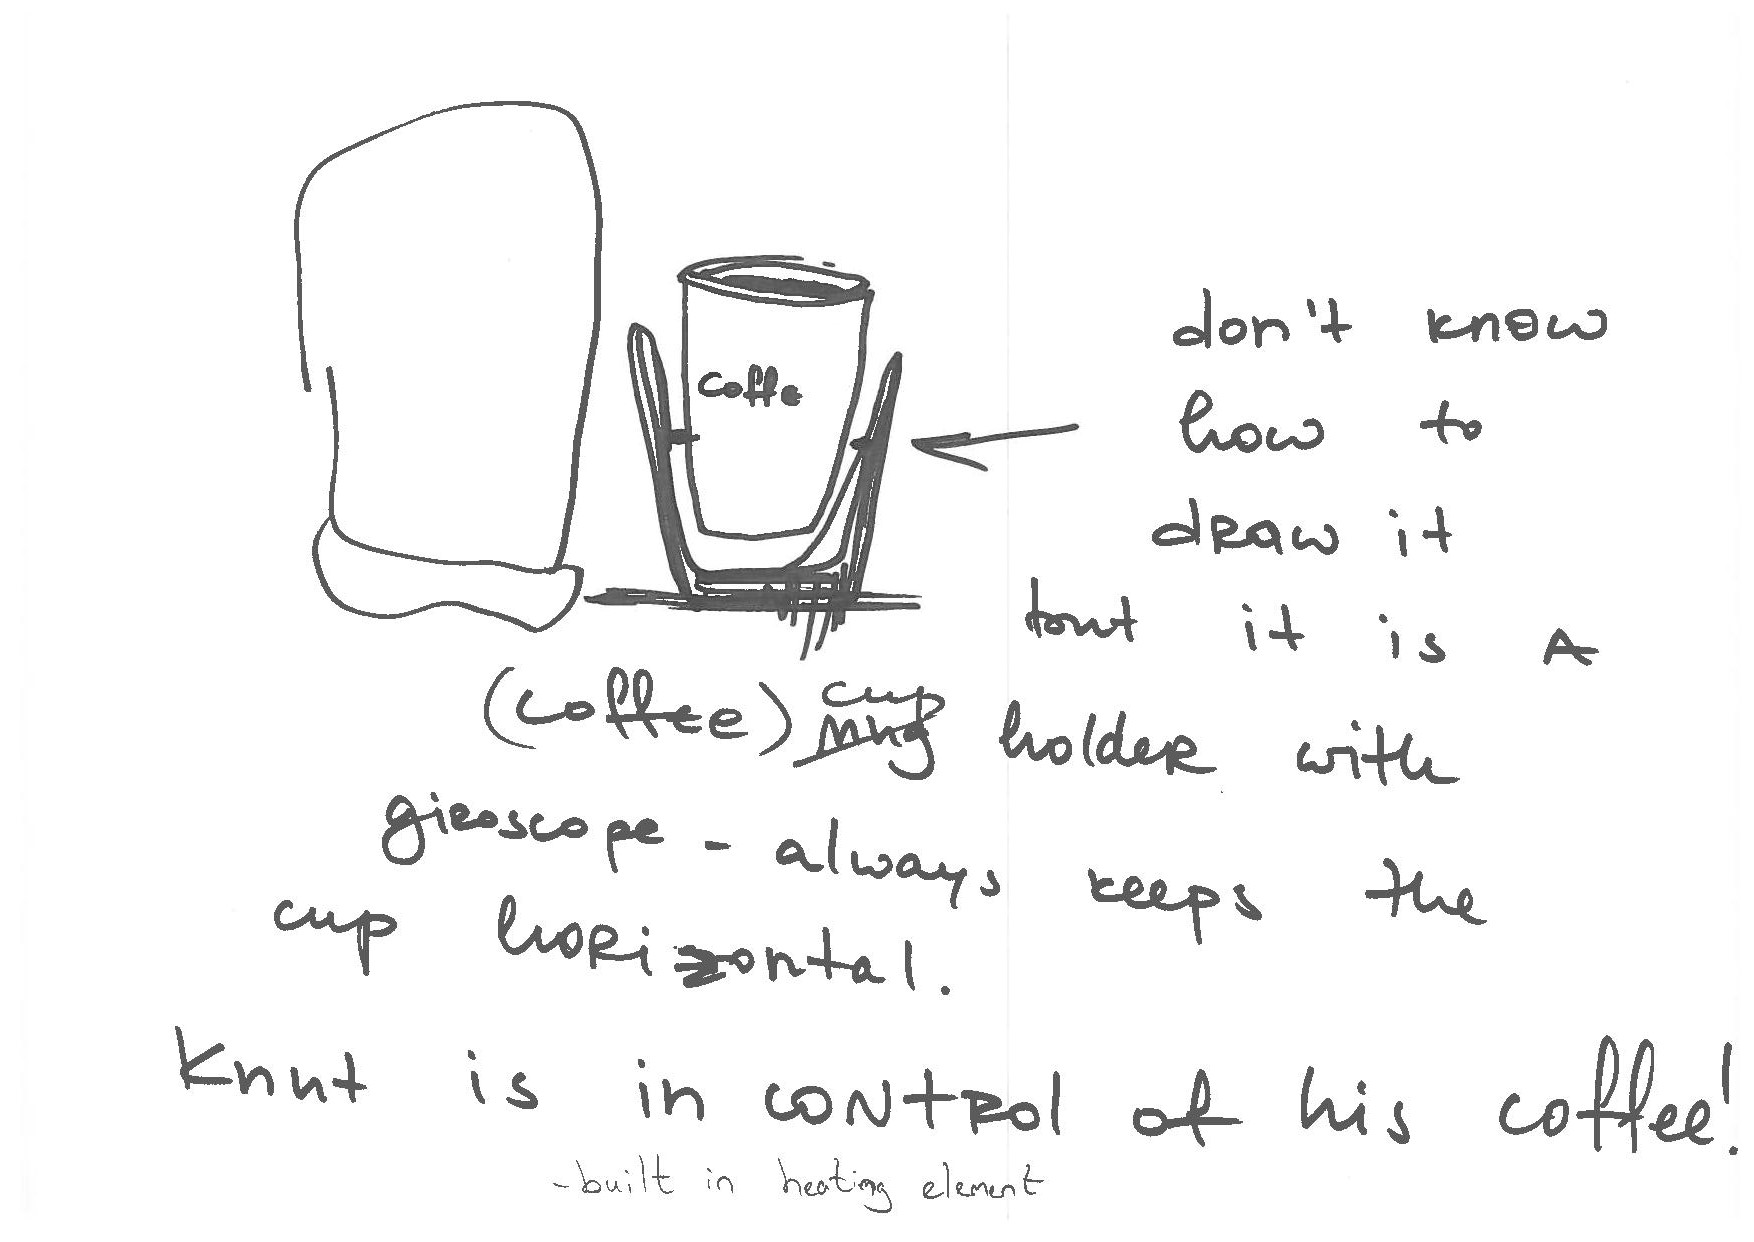 Coffe
don't know
how to
draw it
but it is a
(coffee) cup
mug holder with
giroscope - always keeps the
cup horizontal.
Knut is in control of his coffee!
- built in heating element